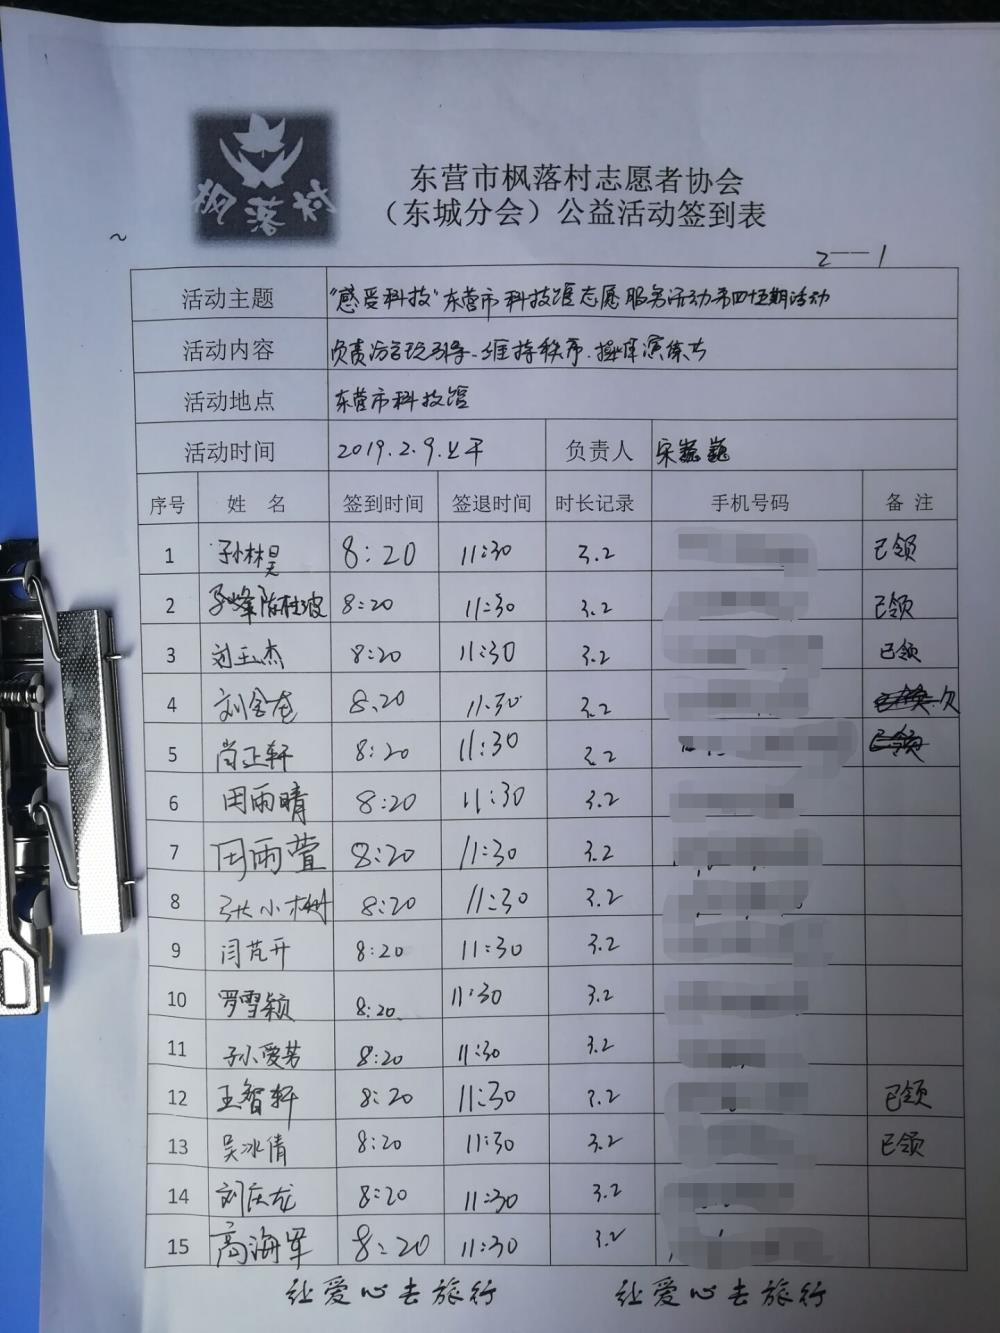 枫落村
东营市枫落村志愿者协会
（东城分会）公益活动签到表
2—1
活动主题 "感受科技"东营市科技馆志愿服务活动第四十五期活动
活动内容 负责访客引导、维持秩序、操作演练等
活动地点 东营市科技馆
活动时间 2019.2.9.上午 负责人 宋巍巍
序号 姓 名 签到时间 签退时间 时长记录 手机号码 备 注
1 孙林昊 8:20 11:30 3.2 已领
2 8:20 11:30 3.2 已领
3 刘玉杰 8:20 11:30 3.2 已领
4 刘金龙 8:20 11:30 3.2 欠
5 尚正轩 8:20 11:30 3.2 已领
6 田雨晴 8:20 11:30 3.2
7 田雨萱 8:20 11:30 3.2
8 张小树 8:20 11:30 3.2
9 闫芃开 8:20 11:30 3.2
10 罗雪颖 8:20 11:30 3.2
11 孙爱芳 8:20 11:30 3.2
12 王智轩 8:20 11:30 3.2 已领
13 吴冰倩 8:20 11:30 3.2 已领
14 刘庆龙 8:20 11:30 3.2
15 高海军 8:20 11:30 3.2
让爱心去旅行 让爱心去旅行